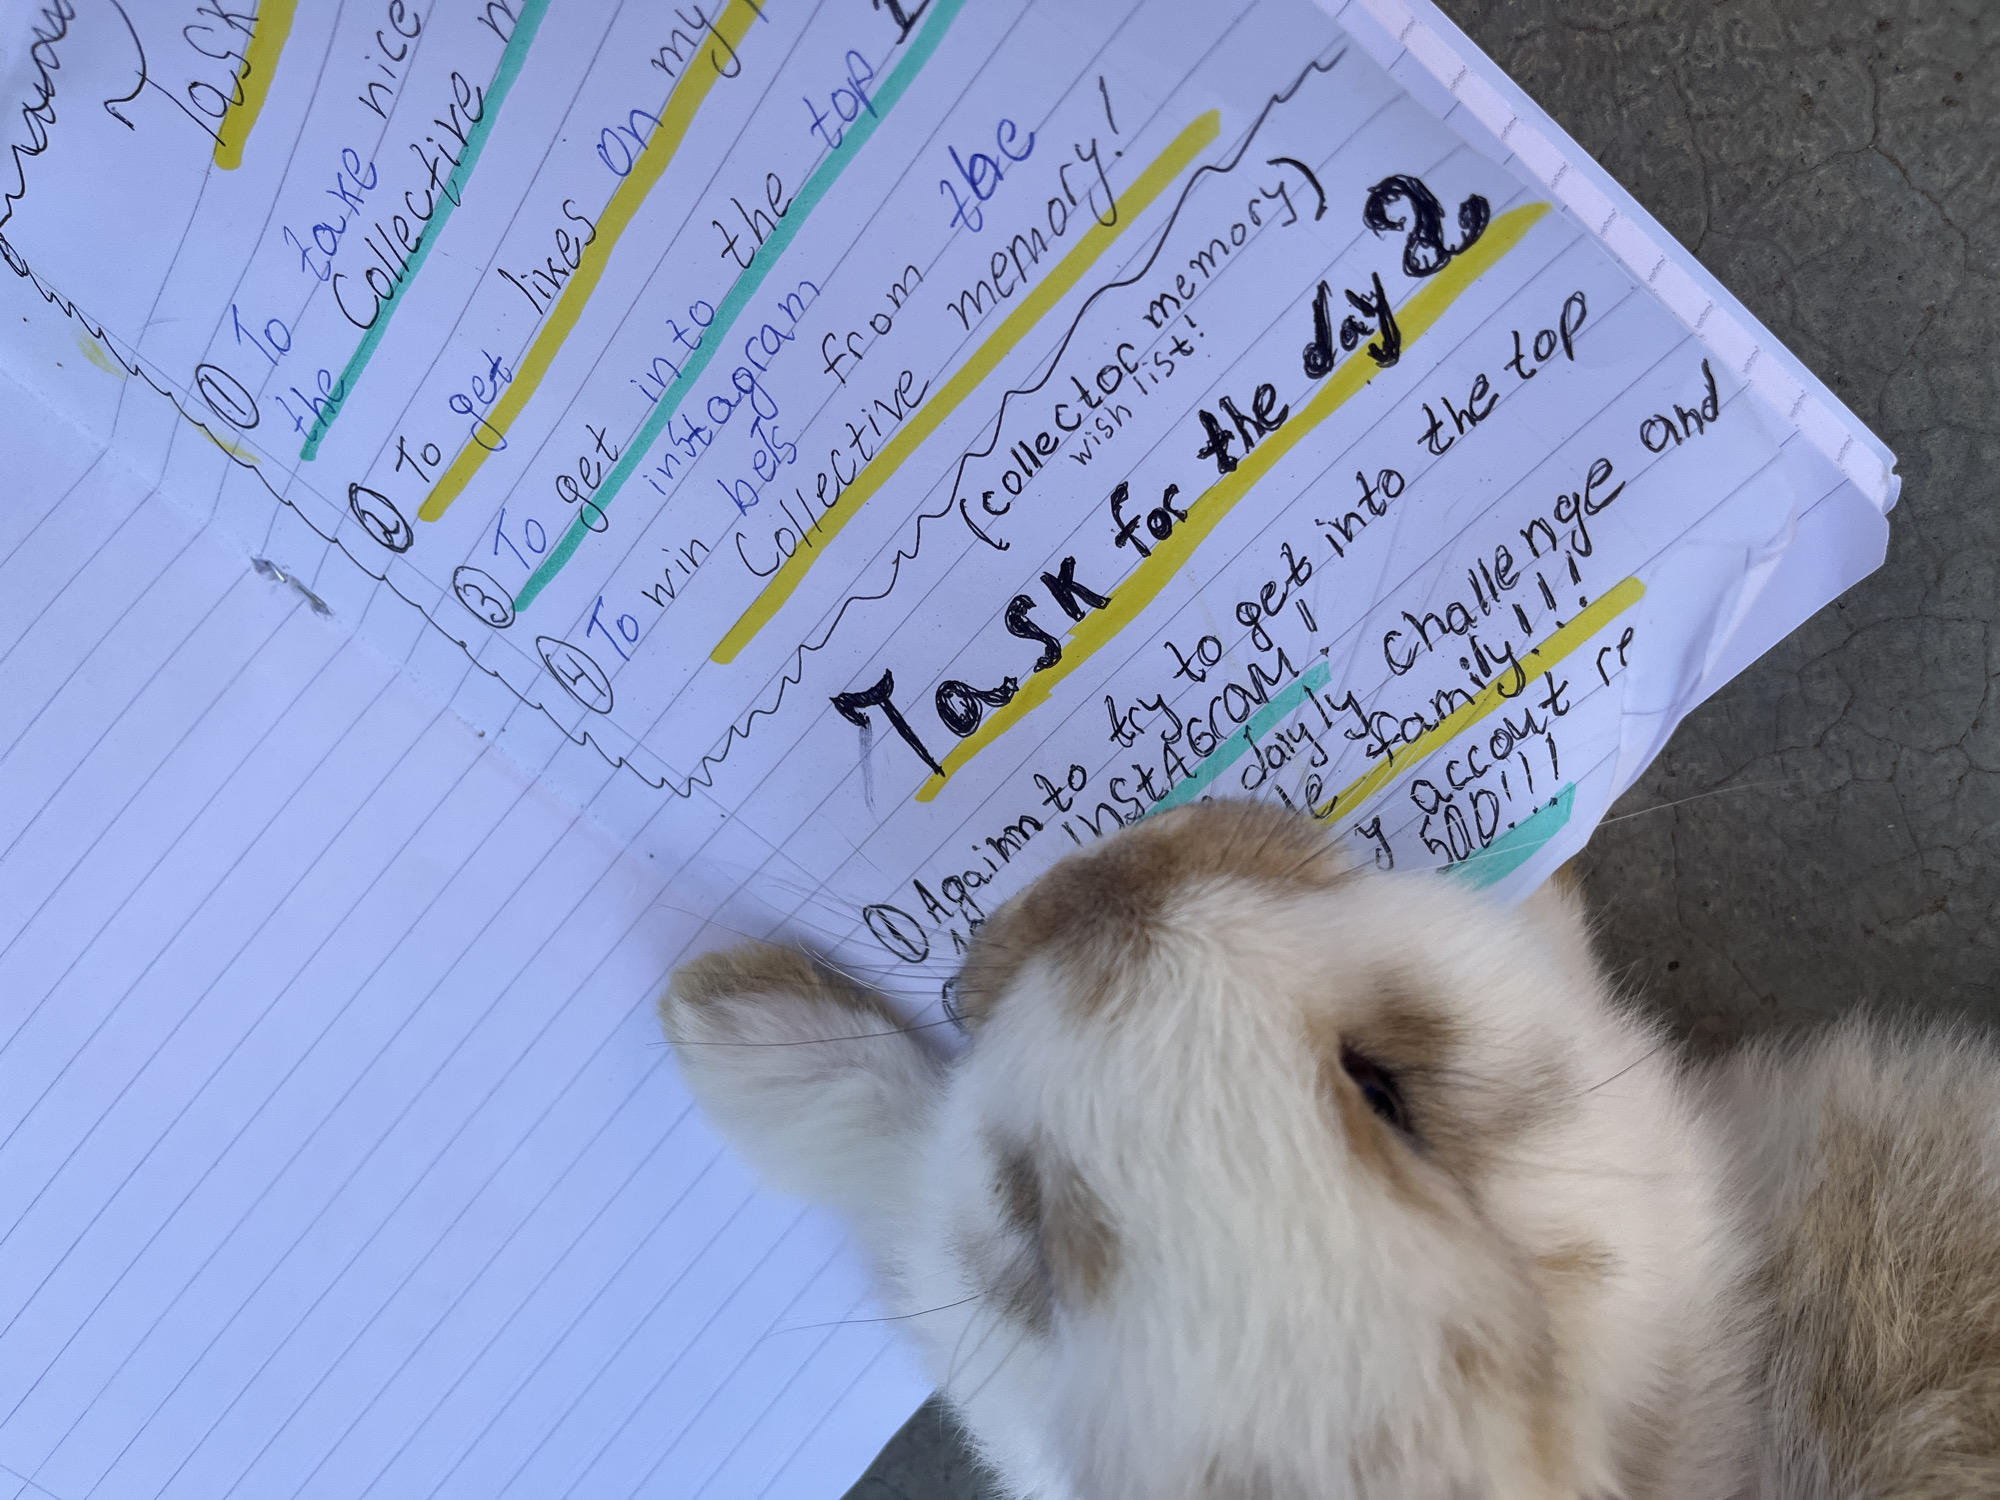 Task
① To take nice
the Collective
② To get likes on my
③ To get into the top 1
instagram
④ To win bets from the
Collective memory!
(collector memory)
wish list!
Task for the day 2.
① Againn to try to get into the top
INStAGrAM!
dayly challenge and
family!!!
y account
500!!!